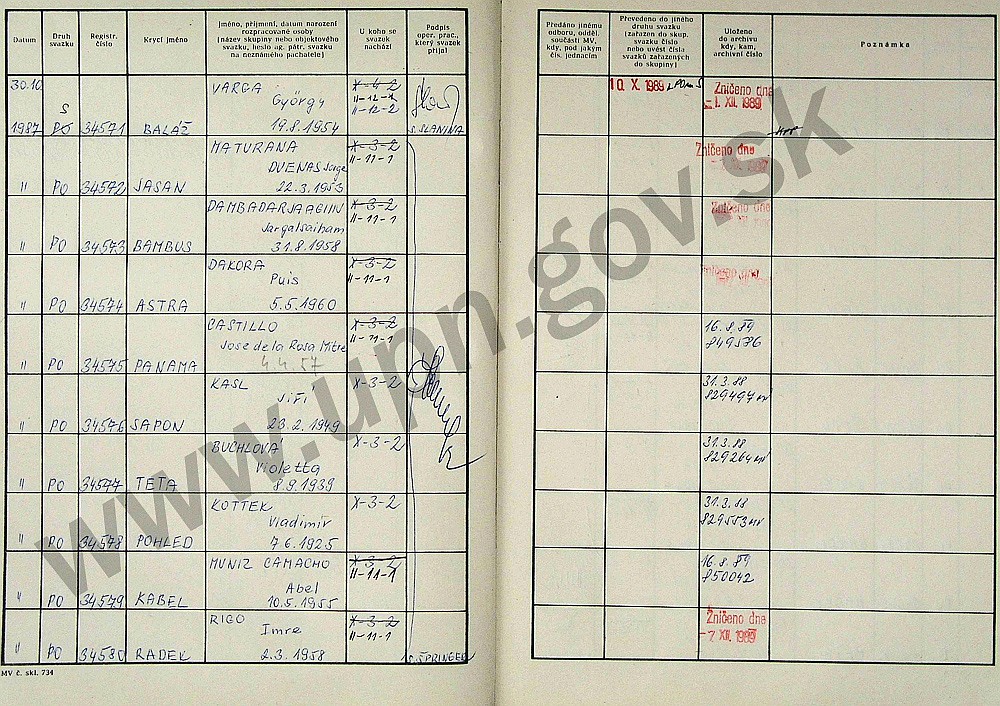 Datum
Druh svazku
Registr. číslo
Krycí jméno
Jméno, příjmení, datum narození rozpracované osoby (název skupiny nebo objektového svazku, heslo ag. pátr. svazku na neznámého pachatele)
U koho se svazek nachází
Podpis oper. prac., který svazek přijal
Předáno jinému odboru, odděl. součásti MV, kdy, pod jakým čís. jednacím
Převedeno do jiného druhu svazku (zařazen do skup. svazku číslo nebo uvést čísla svazků zařazených do skupiny)
Uloženo do archivu kdy, kam, archivní číslo
Poznámka
30.10. 1987 S PO 34571 BALÁŽ
VARGA
György
19.8.1954
X-4-2
II-12-1
II-12-2
S. SLANINA
10. X. 1989
Zničeno dne
-1. XII. 1989
" PO 34572 JASAN
MATURANA
DUENAS Jorge
22.3.1953
X-3-2
II-11-1
Zničeno dne
" PO 34573 BAMBUS
DAMBADARJAAGIIN
Jargalsaiham
31.8.1958
X-3-2
II-11-1
Zničeno dne
" PO 34574 ASTRA
DAKORA
Puis
5.5.1960
X-3-2
II-11-1
" PO 34575 PANAMA
CASTILLO
Jose de la Rosa Mitre
4.4.57
X-3-2
II-11-1
16.8.89
849586
" PO 34576 SAPON
KASL
Jiří
23.2.1949
X-3-2
31.3.88
829497 MV
" PO 34577 TETA
BUCHLOVÁ
Violetta
8.9.1939
X-3-2
31.3.88
829264 MV
" PO 34578 POHLED
KOTTEK
Vladimír
7.6.1925
X-3-2
31.3.88
829553 MV
" PO 34579 KABEL
MUNIZ CAMACHO
Abel
10.5.1955
X-3-2
II-11-1
16.8.89
850042
" PO 34580 RADEK
RIGO
Imre
2.3.1958
X-3-2
II-11-1
S. ŠPRINGER
Zničeno dne
-7. XII. 1989
MV č. skl. 734
www.upn.gov.sk